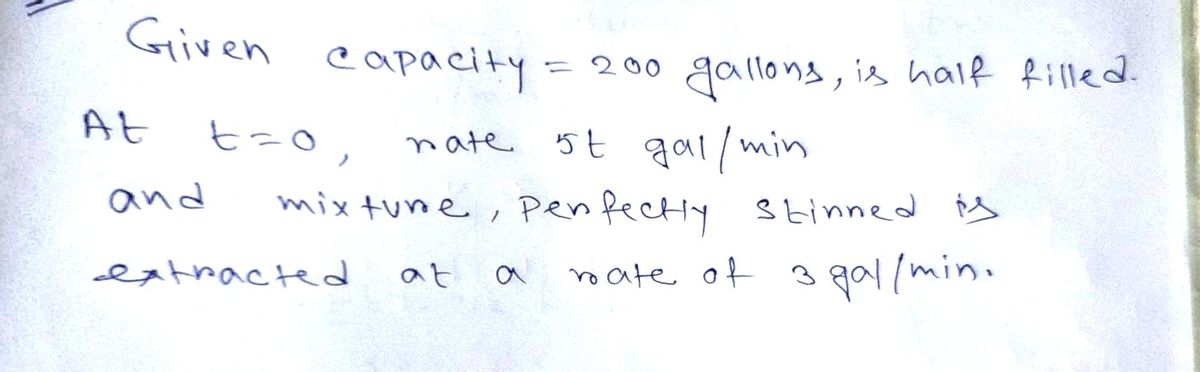 Given capacity = 200 gallons, is half filled.
At t=0, rate 5t gal/min
and mixture, perfectly stirred is
extracted at a rate of 3 gal/min.